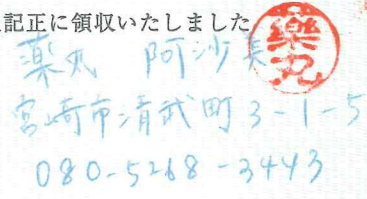 記正に領収いたしました
薬丸 阿沙美
薬丸
宮崎市清武町3-1-5
080-5268-3443